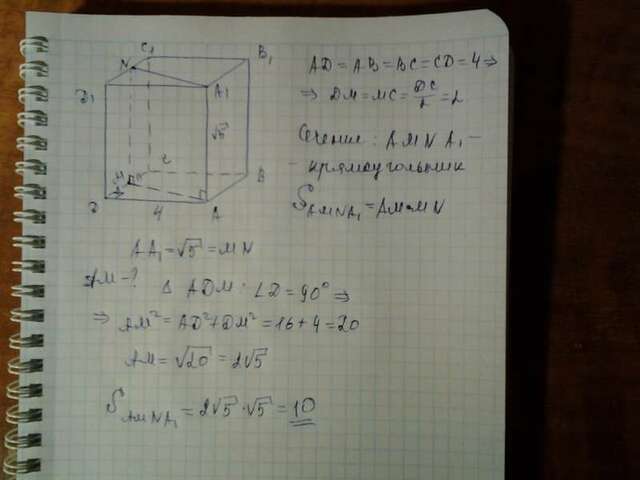 C₁
N
B₁
D₁
A₁
√5
M
C
B
D
4
A
AD = AB = BC = CD = 4 ⇒
⇒ DM = MC = DC/2 = 2
Сечение: AMNA₁ –
– прямоугольник
S_AMNA₁ = AM·MN
AA₁ = √5 = MN
AM - ?
△ ADM: ∠D = 90° ⇒
⇒ AM² = AD² + DM² = 16 + 4 = 20
AM = √20 = 2√5
S_AMNA₁ = 2√5 · √5 = 10